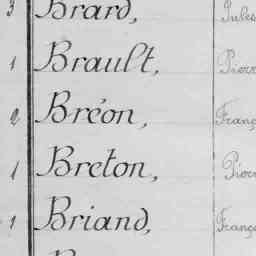 3 Brard, Jules
1 Brault, Pierr
2 Bréon, Franç
1 Breton, Pierr
1 Briand, Franç